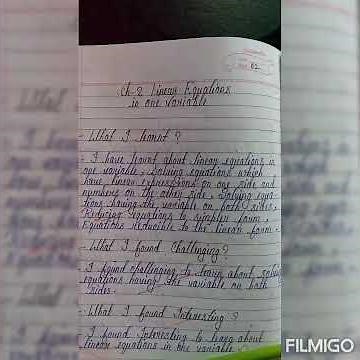 02
Ch-2 Linear Equations
in one variable
- What I learnt?
- I have learnt about linear equations in
one variable, Solving equations which
have linear expressions on one side and
numbers on the other side, Solving equa-
tions having the variable on both sides,
Reducing equations to simpler form,
Equations reducible to the linear form -
- What I found Challenging?
- I found challenging to learn about solving
equations having the variable on both
sides.
- What I found Interesting?
- I found Interesting to learn about
linear equations in one variable
FILMIGO